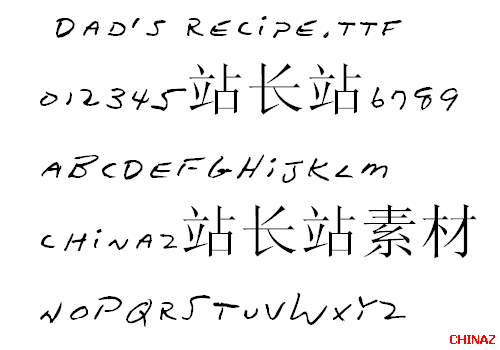 DAD'S RECiPE.TTF
012345站长站6789
ABCDEFGHiJKLM
CHiNAZ站长站素材
NOPQRSTUVWXYZ
CHINAZ